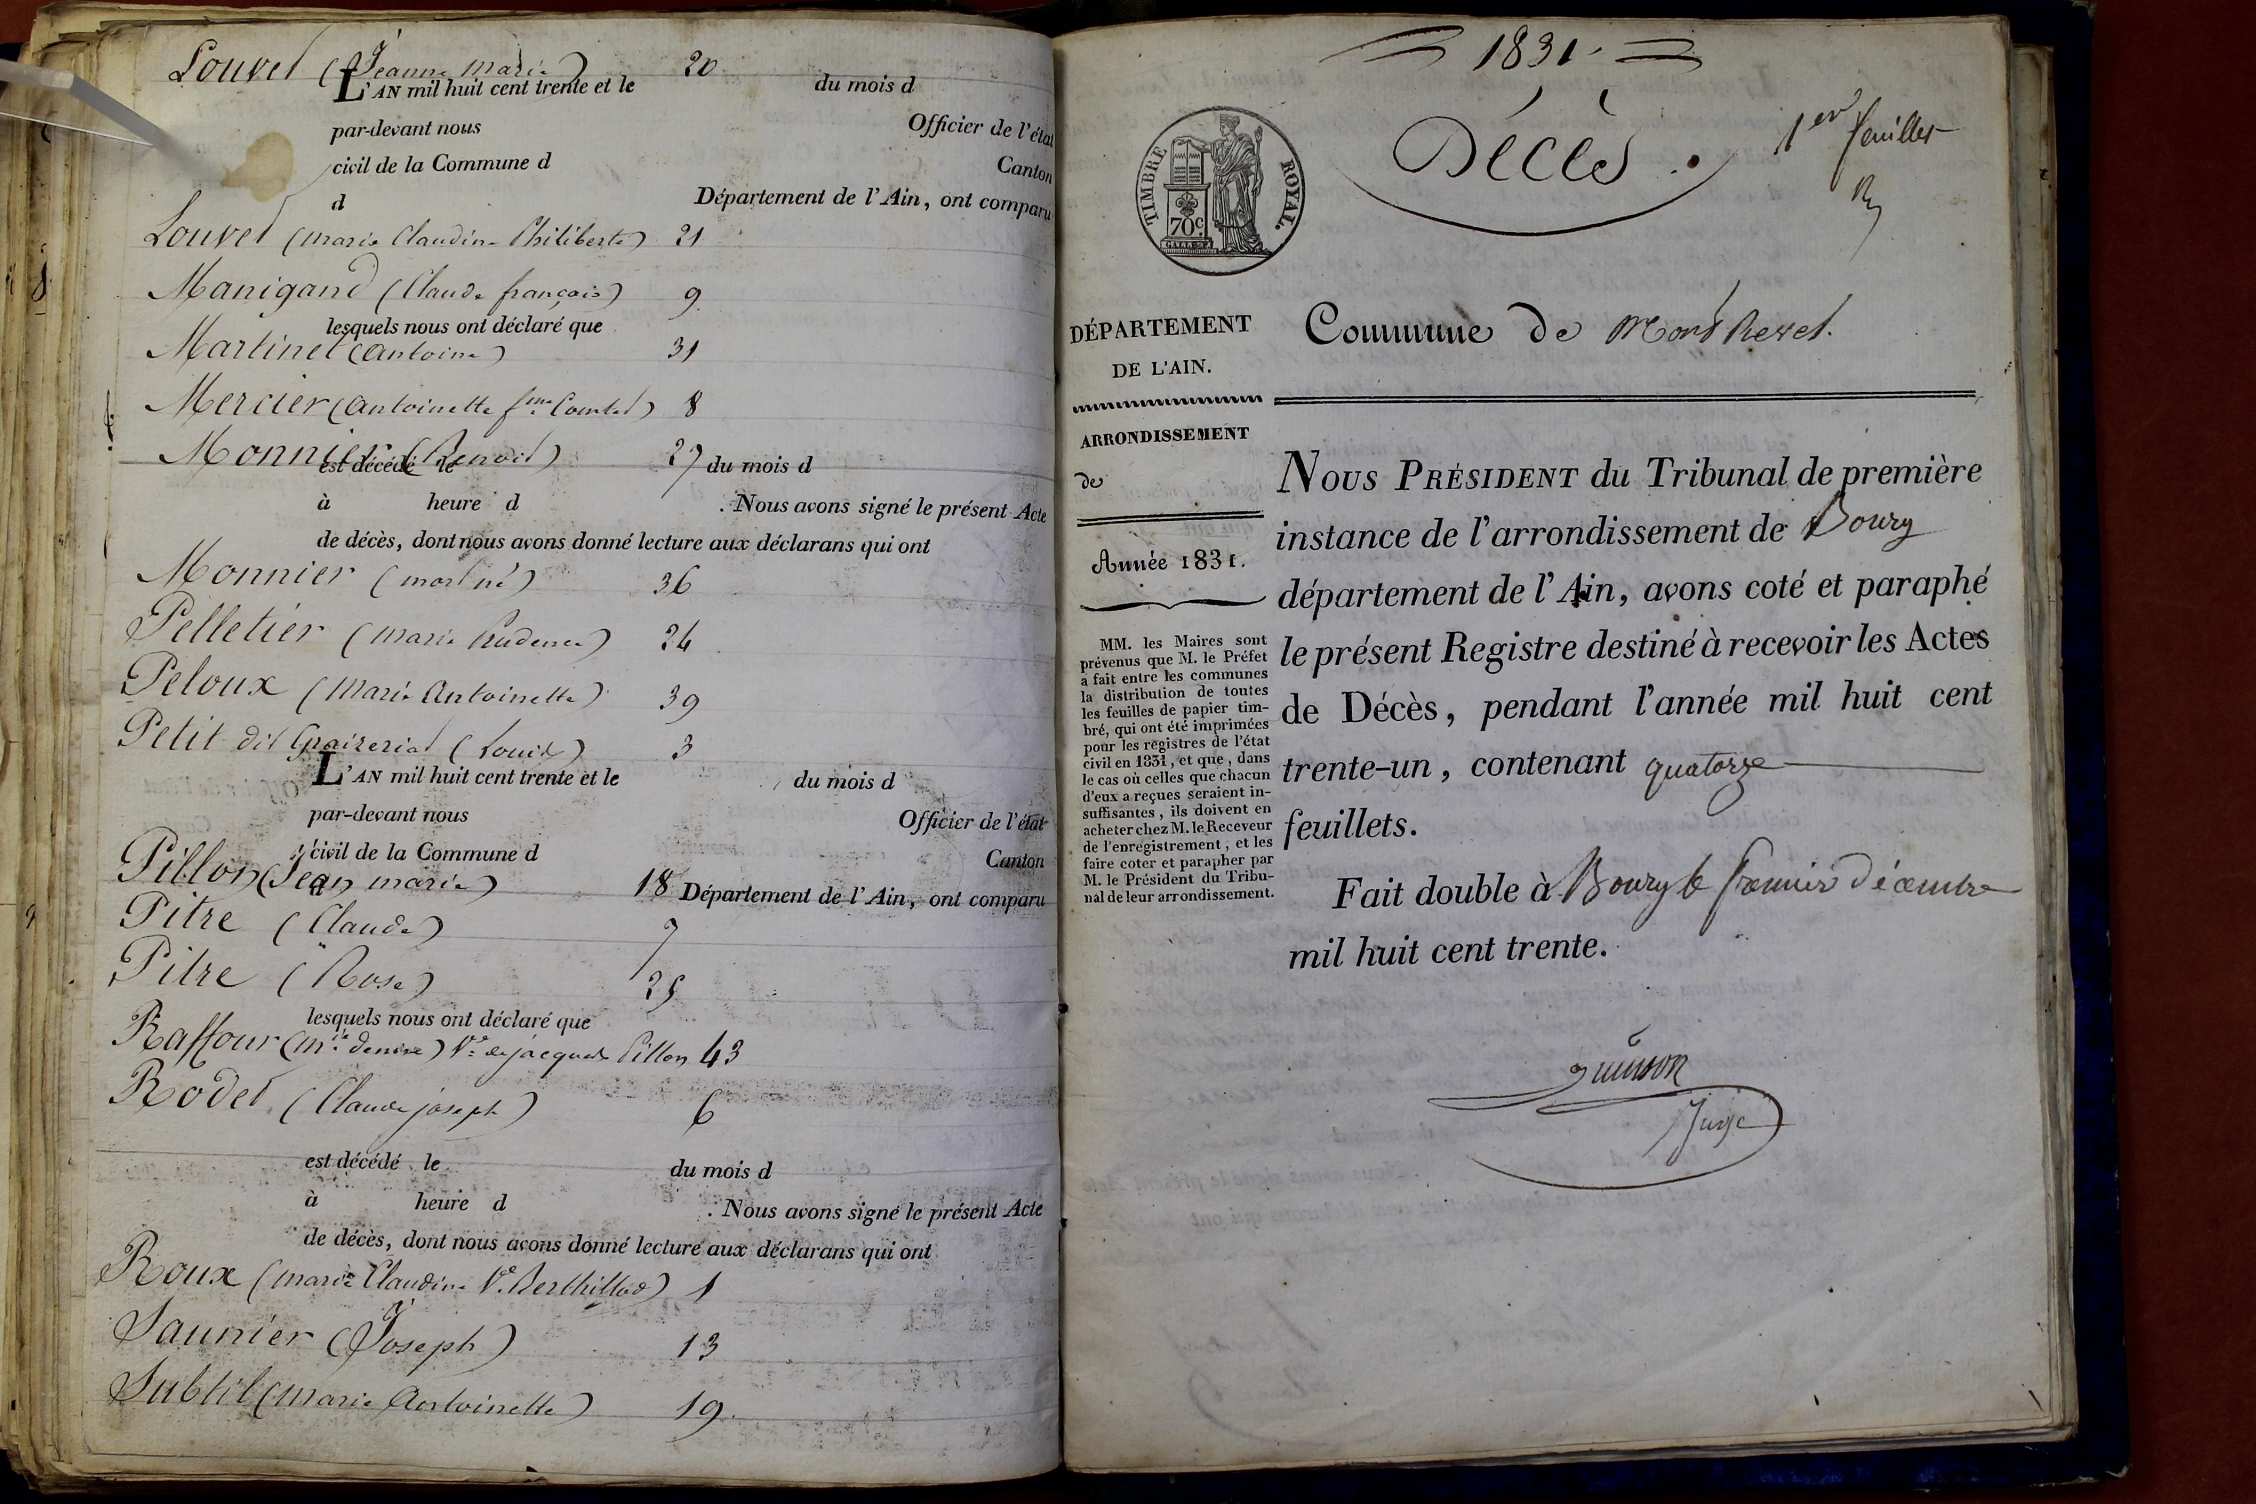 Louvet (Jeanne Marie) 20
L'AN mil huit cent trente et le du mois d
par-devant nous Officier de l'état
civil de la Commune d Canton
d Département de l'Ain, ont comparu
Louvet (marie Claudine Philiberte) 21
Manigand (Claude françois) 9
lesquels nous ont déclaré que
Martinet (antoine) 31
Mercier (antoinette fme Comtet) 8
Monnier (Benoit) 27
est décédé le du mois d
à heure d . Nous avons signé le présent Acte
de décès, dont nous avons donné lecture aux déclarans qui ont
Monnier (mort né) 36
Pelletier (marie Prudence) 24
Peloux (Marie Antoinette) 39
Petit dit (Louis) 3
L'AN mil huit cent trente et le du mois d
par-devant nous Officier de l'état
civil de la Commune d Canton
Pillon (Jean marie) 18
d Département de l'Ain, ont comparu
Pitre (Claude) 7
Pitre (Rose) 25
lesquels nous ont déclaré que
Raffour (mie denise) Ve de jacques Pillon 43
Rodet (Claude joseph) 6
est décédé le du mois d
à heure d . Nous avons signé le présent Acte
de décès, dont nous avons donné lecture aux déclarans qui ont
Roux (marie Claudine Ve Berthillod) 1
Saunier (Joseph) 13
Subtil (marie Antoinette) 19
1831.
Décès.
1er feuillet
TIMBRE ROYAL.
70 c.
DÉPARTEMENT
DE L'AIN.
Commune de Montrevel.
ARRONDISSEMENT
de
Année 1831.
MM. les Maires sont
prévenus que M. le Préfet
a fait entre les communes
la distribution de toutes
les feuilles de papier tim-
bré, qui ont été imprimées
pour les registres de l'état
civil en 1831, et que, dans
le cas où celles que chacun
d'eux a reçues seraient in-
suffisantes, ils doivent en
acheter chez M. le Receveur
de l'enregistrement, et les
faire coter et parapher par
M. le Président du Tribu-
nal de leur arrondissement.
NOUS PRÉSIDENT du Tribunal de première
instance de l'arrondissement de Bourg
département de l'Ain, avons coté et paraphé
le présent Registre destiné à recevoir les Actes
de Décès, pendant l'année mil huit cent
trente-un, contenant quatorze
feuillets.
Fait double à Bourg le premier décembre
mil huit cent trente.
Juge